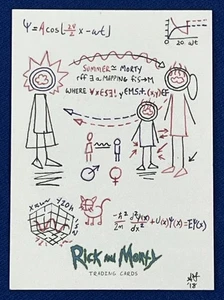 Ψ = A cos[2π/λ x - ωt]
20 ωt
SUMMER ≃ MORTY
iff ∃ A MAPPING f: S→M
WHERE ∀x∈S ∃! y∈M s.t. (x,y)∈F
♂ ♀
-ħ²/2m d²Ψ(x)/dx² + U(x)Ψ(x) = EΨ(x)
RICK AND MORTY
TRADING CARDS
'18